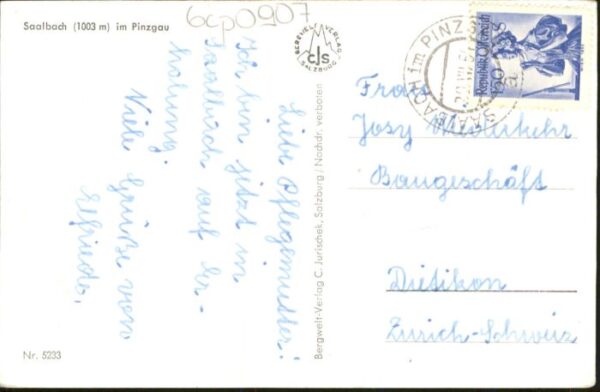 Saalbach (1003 m) im Pinzgau
6cp0907
BERGWELT-VERLAG
CJS
SALZBURG
Liebe Pflegemutter!
Ich bin jetzt in
Saalbach auf Er-
holung.
Viele Grüße von
Elfriede.
Nr. 5233
Bergwelt-Verlag C. Jurischek, Salzburg / Nachdr. verboten
SAALBACH im PINZGAU
Republik Österreich
Frau
Josy Wiederkehr
Baugeschäft
Dietikon
Zürich-Schweiz